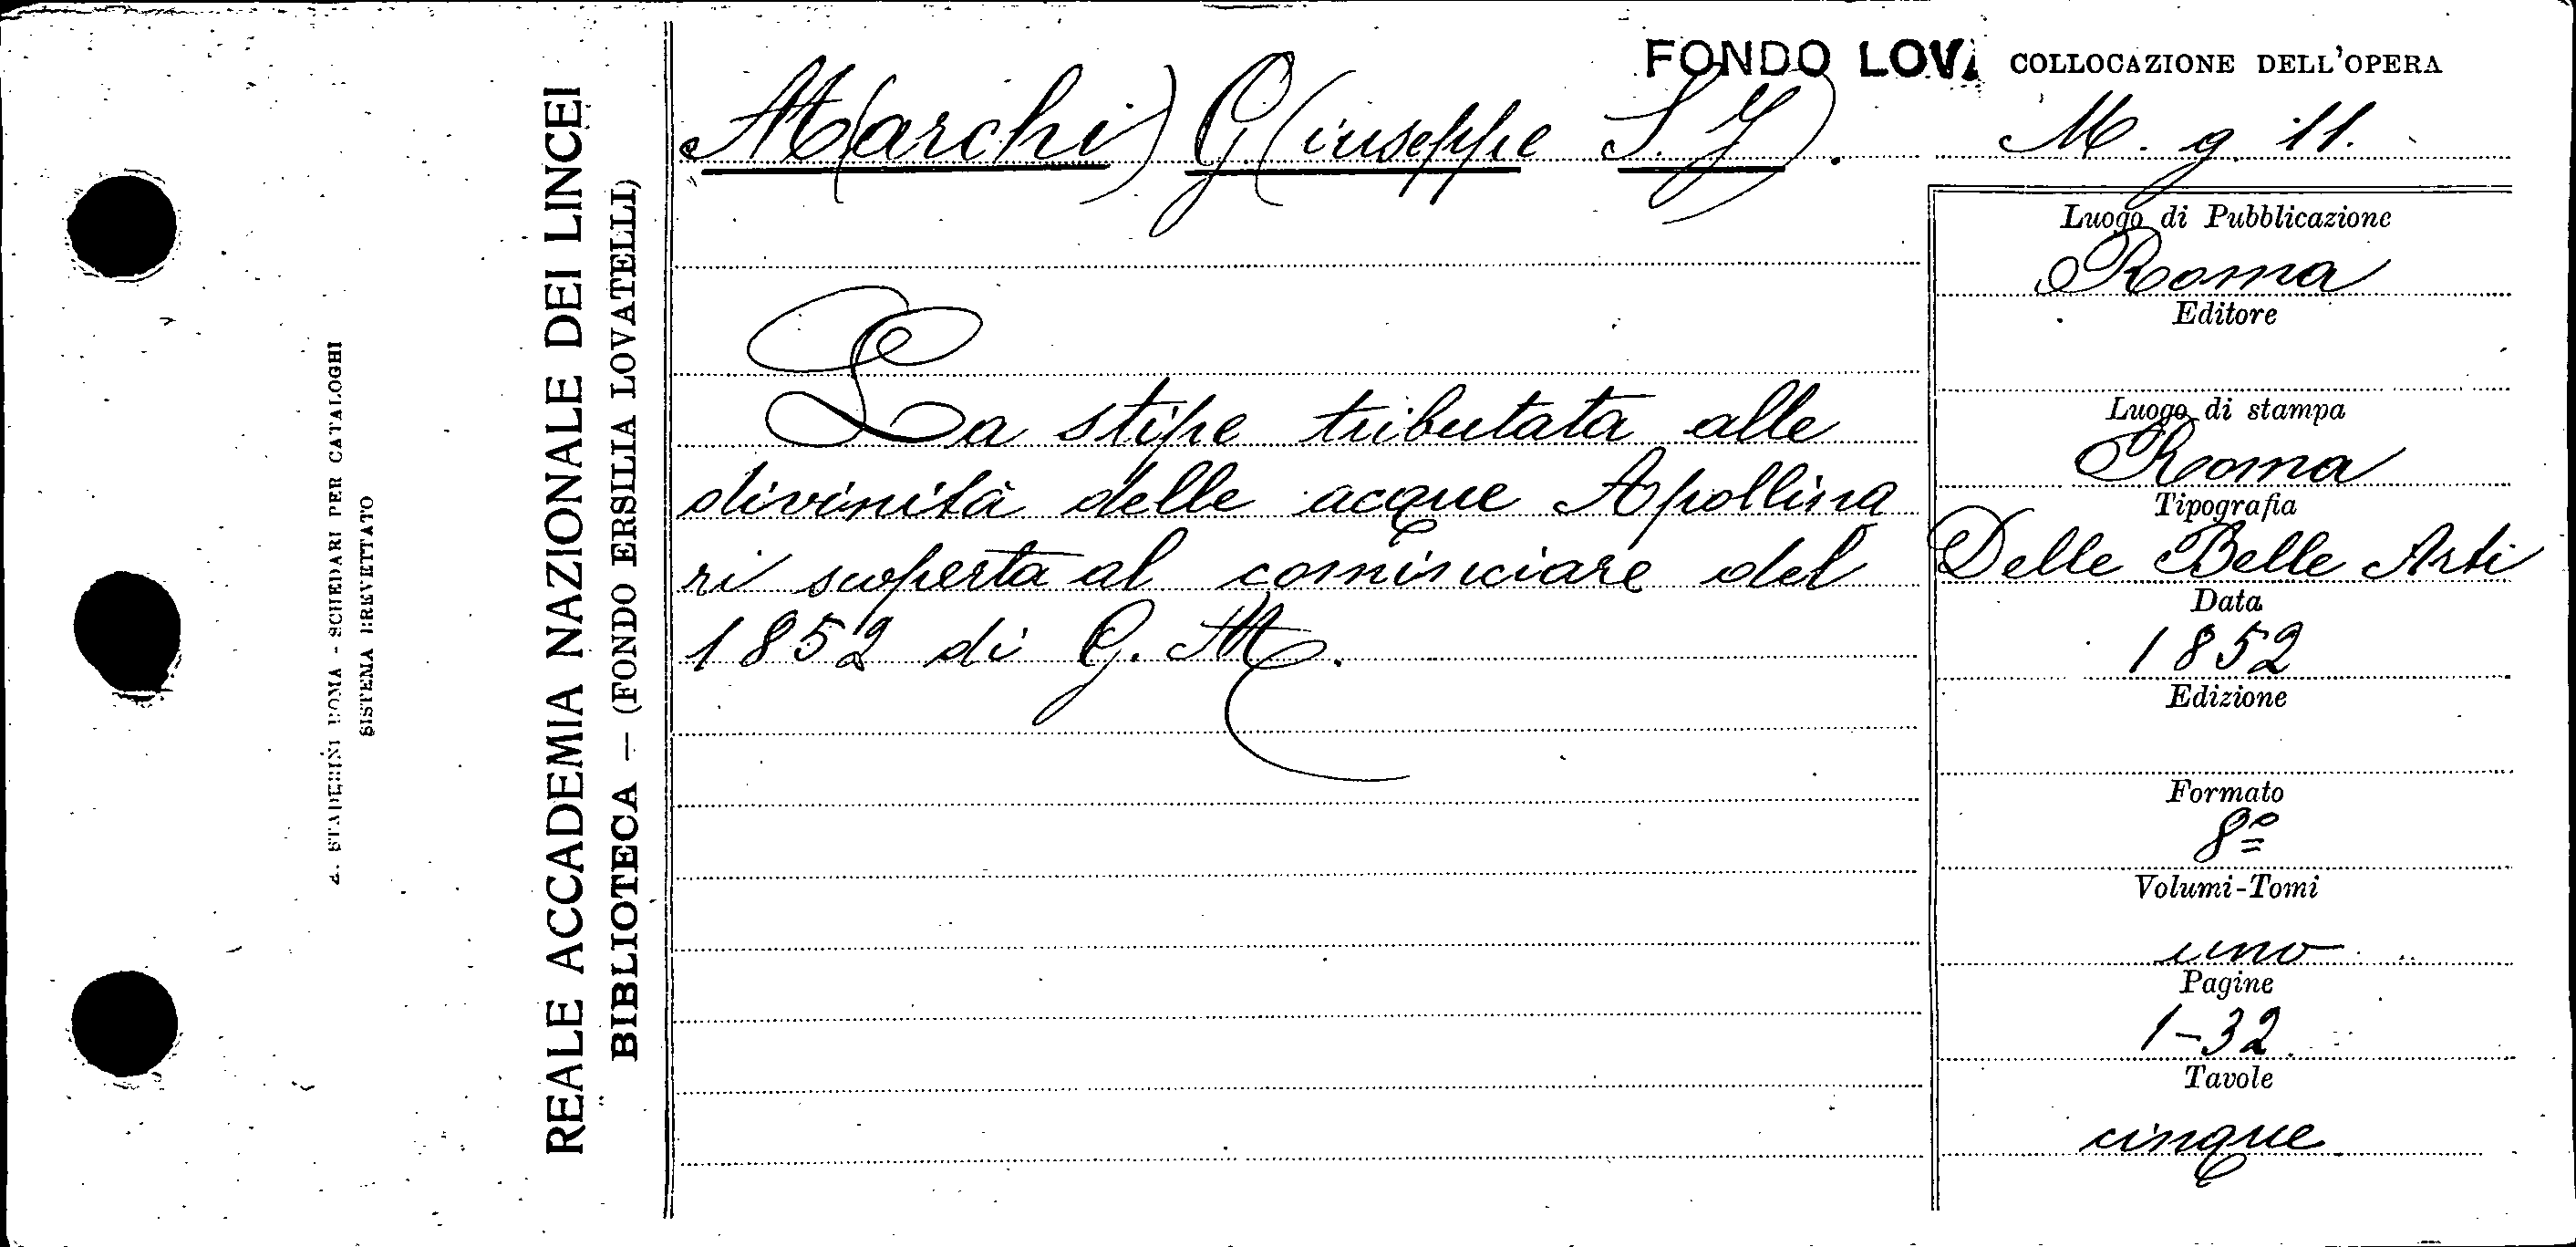 A. STADERINI ROMA - SCHEDARI PER CATALOGHI
SISTEMA BREVETTATO
REALE ACCADEMIA NAZIONALE DEI LINCEI
BIBLIOTECA — (FONDO ERSILIA LOVATELLI)
FONDO LOVA
COLLOCAZIONE DELL'OPERA
M(archi) G(iuseppe S.J).
M. g. 11.
La stipe tributata alle
divinità delle acque Apollina
ri scoperta al cominciare del
1852 di G. M.
Luogo di Pubblicazione
Roma
Editore
Luogo di stampa
Roma
Tipografia
Delle Belle Arti
Data
1852
Edizione
Formato
8º
Volumi-Tomi
uno
Pagine
1-32
Tavole
cinque